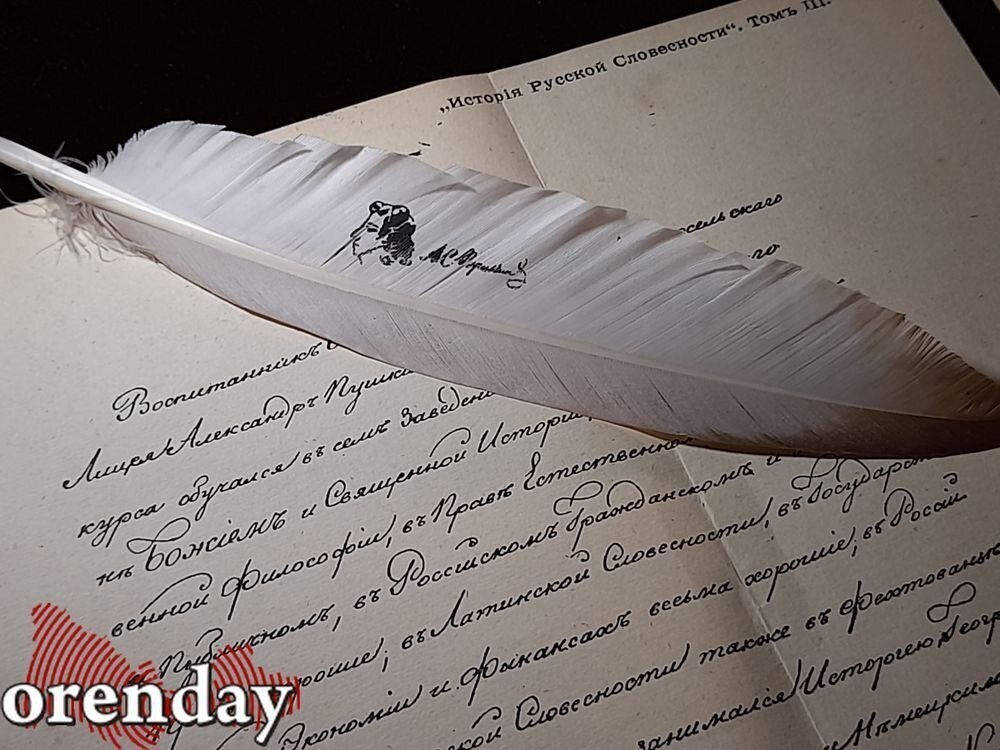 „Исторія Русской Словесности“. Томъ III.
сельскаго
го
А.С.Пушкин
Воспитанникъ
Лицея Александръ Пушки
курса обучался въ семъ Заведен
нъ Божіемъ и Священной Исторіи,
венной Философіи, въ Правѣ Естественно
и Публичномъ, въ Россійскомъ Гражданскомъ и
хорошіе; въ Латинской Словесности, въ Государст
Экономіи и Финансахъ весьма хорошіе; въ Россій
ской Словесности также въ Фехтованьи
занимался Исторіею Геогр
Нѣмецким
orenday